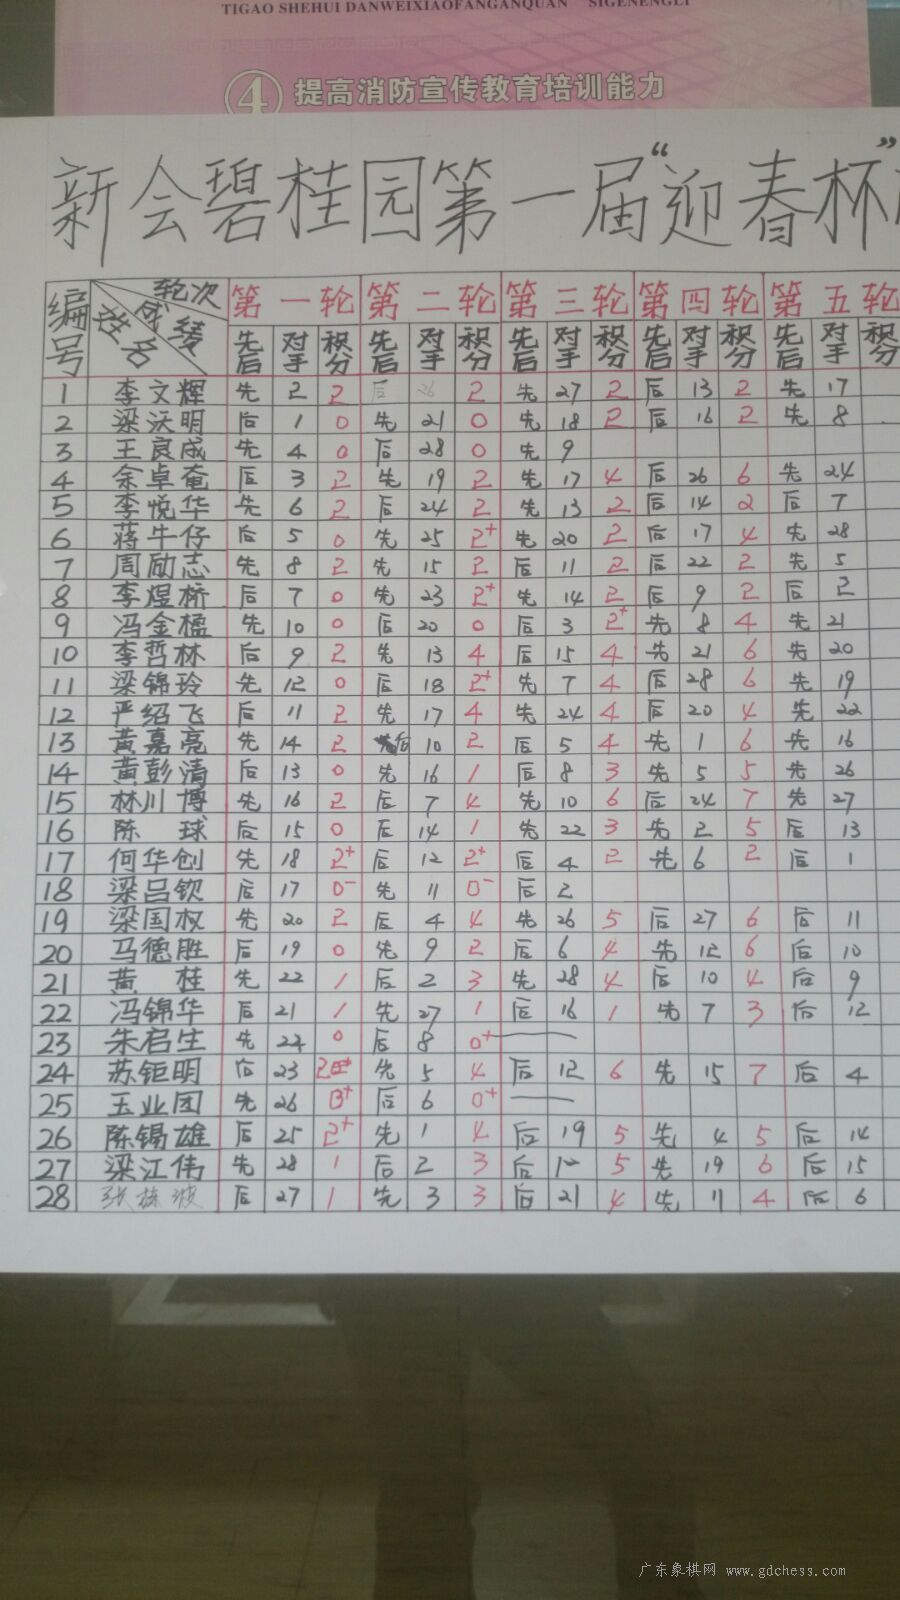 TIGAO SHEHUI DANWEIXIAOFANGANQUAN SIGENENGLI
④ 提高消防宣传教育培训能力
新会碧桂园第一届“迎春杯”
编号 轮次 成绩 姓名 第一轮 第二轮 第三轮 第四轮 第五轮
先后 对手 积分 先后 对手 积分 先后 对手 积分 先后 对手 积分 先后 对手 积分
1 李文辉 先 2 2 后 26 2 先 27 2 后 13 2 先 17
2 梁沃明 后 1 0 先 21 0 先 18 2 后 16 2 先 8
3 王良成 先 4 0 后 28 0 先 9
4 余卓奄 后 3 2 先 19 2 先 17 4 后 26 6 先 24
5 李悦华 先 6 2 后 24 2 先 13 2 后 14 2 后 7
6 蒋牛仔 后 5 0 先 25 2+ 先 20 2 后 17 4 先 28
7 周励志 先 8 2 先 15 2 后 11 2 后 22 2 先 5
8 李煜桥 后 7 0 先 23 2+ 先 14 2 后 9 2 后 2
9 冯金楹 先 10 0 后 20 0 后 3 2+ 先 8 4 先 21
10 李哲林 后 9 2 先 13 4 后 15 4 先 21 6 先 20
11 梁锦玲 先 12 0 后 18 2+ 先 7 4 后 28 6 先 19
12 严绍飞 后 11 2 先 17 4 先 24 4 后 20 4 先 22
13 黄嘉亮 先 14 2 后 10 2 后 5 4 先 1 6 先 16
14 黄彭清 后 13 0 先 16 1 后 8 3 先 5 5 先 26
15 林川博 先 16 2 后 7 4 先 10 6 后 24 7 先 27
16 陈 球 后 15 0 后 14 1 先 22 3 先 2 5 后 13
17 何华创 先 18 2+ 后 12 2+ 后 4 2 先 6 2 后 1
18 梁吕钦 后 17 0- 先 11 0- 后 2
19 梁国权 先 20 2 后 4 4 先 26 5 后 27 6 后 11
20 马德胜 后 19 0 先 9 2 后 6 4 先 12 6 后 10
21 黄 桂 先 22 1 后 2 3 先 28 4 后 10 4 后 9
22 冯锦华 后 21 1 先 27 1 后 16 1 先 7 3 后 12
23 朱启生 先 24 0 后 8 0+
24 苏钜明 后 23 2 先 5 4 后 12 6 先 15 7 后 4
25 玉业团 先 26 0+ 后 6 0+
26 陈锡雄 后 25 2+ 先 1 4 后 19 5 先 4 5 后 14
27 梁江伟 先 28 1 后 2 3 后 12 5 先 19 6 后 15
28 张 后 27 1 先 3 3 后 21 4 先 11 4 后 6
广东象棋网 www.gdchess.com